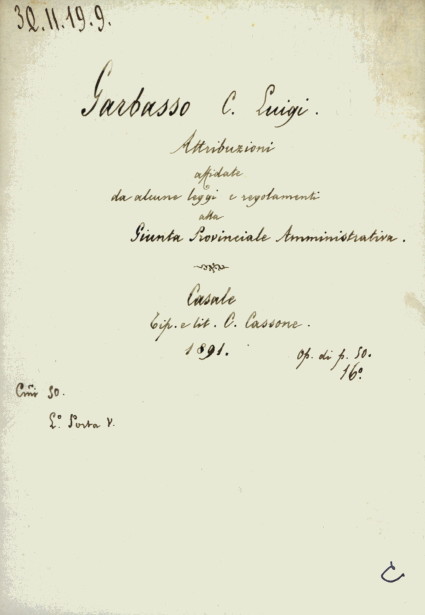 32.11.19.9.
Garbasso C. Luigi.
Attribuzioni
affidate
da alcune leggi e regolamenti
alla
Giunta Provinciale Amministrativa.
Casale
Tip. e lit. C. Cassone.
1891.
Op. di p. 50.
16°.
50.
Porta V.
C